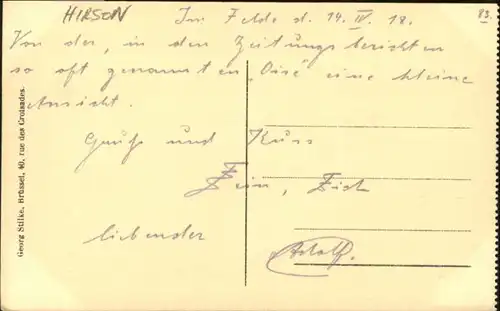 HIRSON Im Felde d. 14. IV. 18. 83.
Von der, in den Zeitungsberichten
so oft genannten „Oise" eine kleine
Ansicht.
Gruß und Kuss
Dein, Dich
liebender
Adolf.
Georg Stilke, Brüssel, 40, rue des Croisades.